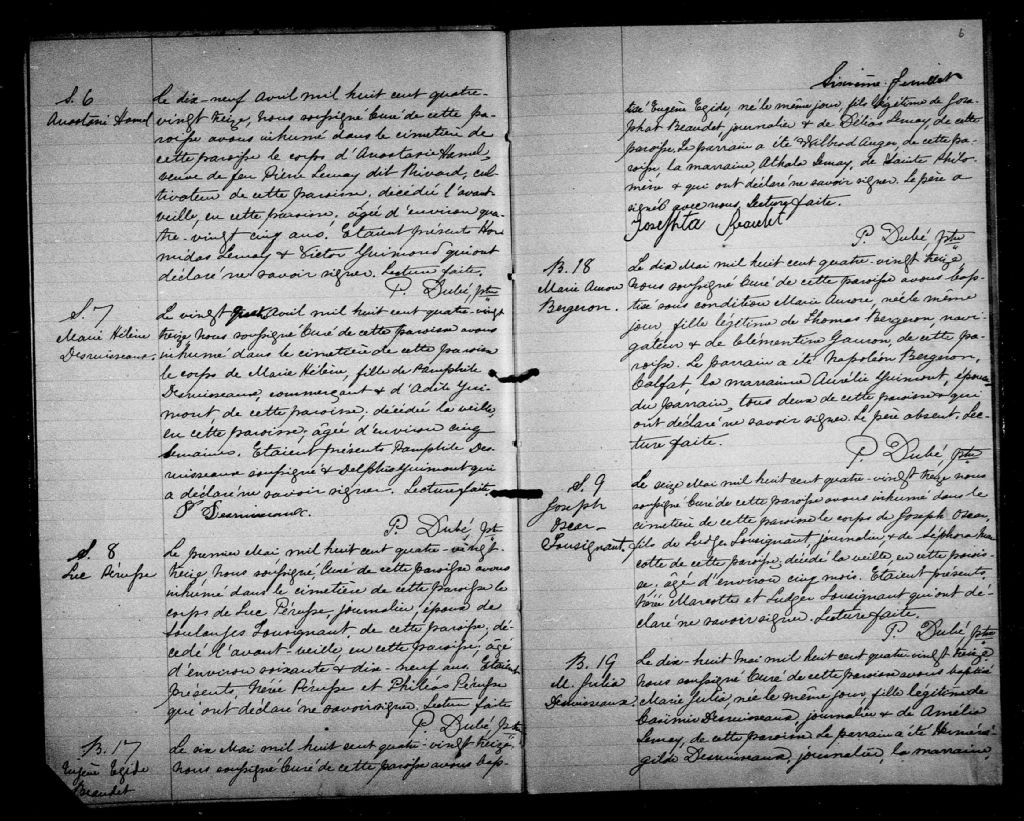 S. 6
Anastasie Hamel
Le dix-neuf Avril mil huit cent quatre-
vingt treize, nous soussigné Curé de cette pa-
roisse avons inhumé dans le cimetière de
cette paroisse le corps d'Anastasie Hamel,
veuve de feu Pierre Lemay dit Rivard, cul-
tivateur de cette paroisse, décédée l'avant
veille, en cette paroisse, âgée d'environ qua-
tre-vingt cinq ans. Etaient présents Hor-
midas Lemay & Victor Guimond qui ont
déclaré ne savoir signer. Lecture faite.
P. Dubé, Ptre
S. 7
Marie Hélène
Desruisseaux.
Le vingt Avril mil huit cent quatre-vingt
treize, nous soussigné Curé de cette paroisse avons
inhumé dans le cimetière de cette paroisse
le corps de Marie Hélène, fille de Pamphile
Desruisseaux, commerçant & d'Adèle Gui-
mont de cette paroisse, décédée la veille,
en cette paroisse, âgée d'environ cinq
semaines. Etaient présents Pamphile Des-
ruisseaux soussigné & Delphis Guimont qui
a déclaré ne savoir signer. Lecture faite.
P Desruisseaux.
P. Dubé, Ptre
S. 8
Luc Pérusse
Le premier Mai mil huit cent quatre-vingt-
treize, nous soussigné, Curé de cette paroisse avons
inhumé dans le cimetière de cette paroisse le
corps de Luc Pérusse, journalier, époux de
Soulanges Tousignant de cette paroisse, dé-
cédé l'avant-veille en cette paroisse, âgé
d'environ soixante & dix-neuf ans. Etaient
présents, Nérée Pérusse et Philéas Pérusse
qui ont déclaré ne savoir signer. Lecture faite
P. Dubé, Ptre
B. 17
Eugène Egide
Beaudet
Le six Mai mil huit cent quatre-vingt treize,
nous soussigné Curé de cette paroisse avons bap-
6
Sixième feuillet
tisé Eugène Egide, né le même jour, fils légitime de Josa-
phat Beaudet journalier & de Délias Lemay, de cette
paroisse. Le parrain a été Wilbrod Auger, de cette pa-
roisse, la marraine, Athala Lemay, de Sainte Philo-
mène & qui ont déclaré ne savoir signer. Le père a
signé avec nous. Lecture faite.
Josephta Beaudet
P. Dubé Ptre
B. 18
Marie Aurore
Bergeron.
Le dix Mai mil huit cent quatre-vingt treize,
nous soussigné Curé de cette paroisse avons bap-
tisé sous condition Marie Aurore, née le même
jour, fille légitime de Thomas Bergeron, navi-
gateur & de Clémentine Gauron, de cette pa-
roisse. Le parrain a été Napoléon Bergeron,
Calfat la marraine Aurélie Guimont, épouse
du parrain, tous deux de cette paroisse & qui
ont déclaré ne savoir signer. Le père absent. Lec-
ture faite.
P. Dubé Ptre
S. 9
Joseph
Oscar
Tousignant.
Le seize Mai mil huit cent quatre-vingt treize nous
soussigné Curé de cette paroisse avons inhumé dans le
cimetière de cette paroisse le corps de Joseph Oscar,
fils de Ludger Tousignant, journalier & de Séphora Mar-
cotte de cette paroisse, décédé la veille en cette parois-
se, âgé d'environ cinq mois. Etaient présents,
Nérée Marcotte et Ludger Tousignant qui ont dé-
claré ne savoir signer. Lecture faite.
P. Dubé Ptre
B. 19
M. Julia
Desruisseaux.
Le dix-huit Mai mil huit cent quatre-vingt treize,
nous soussigné Curé de cette paroisse avons baptisé
Marie Julia, née le même jour, fille légitime de
Casimir Desruisseaux, journalier & de Amélia
Lemay, de cette paroisse. Le parrain a été Herméné-
gilde Desruisseaux, journalier, la marraine,